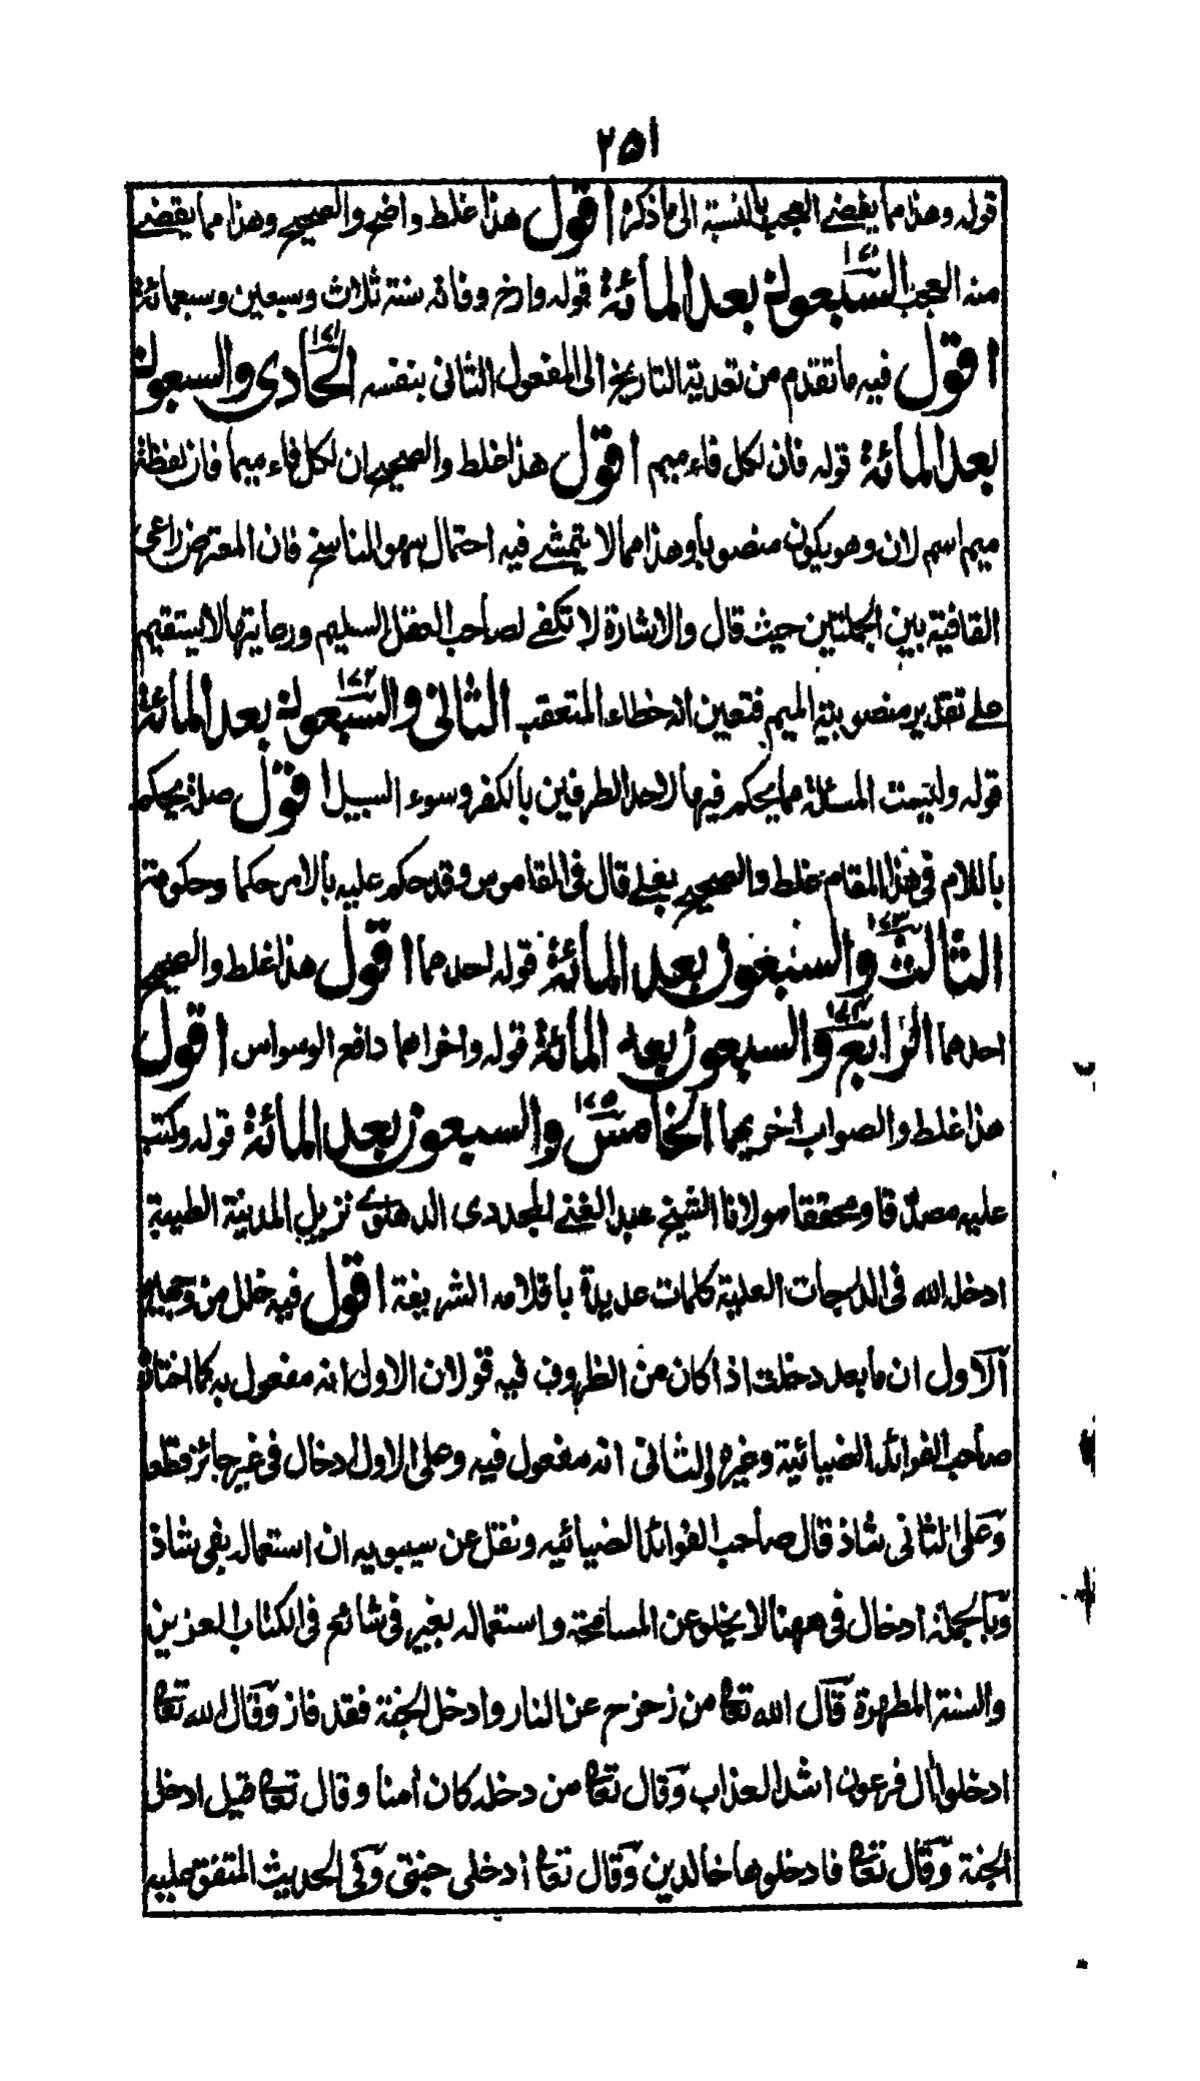 ٢٥١
قوله وهذا مما يفضى العجب بالنسبة الى ما ذكره اقول هذا غلط واضح والصحيح وهذا مما يقضى
منه العجب السبعون بعد المائة ١٧٠ قوله وارخ وفاته سنة ثلاث وسبعين وسبعمائة
اقول فيه ما تقدم من تعدية التاريخ الى المفعول الثانى بنفسه الحادى والسبعون ١٧١
بعد المائة قوله فان لكل فاء ميم اقول هذا غلط والصحيح ان لكل فاء ميما فان لفظة
ميم اسم لان وهو يكون منصوبا وهذا مما لا يتمشى فيه احتمال سهو الناسخ فان المعترض راعى
القافية بين الجملتين حيث قال والاشارة لا تكفى لصاحب العقل السليم ورعايتها لا يستقيم
على تقدير منصوبية الميم فتعين انه خطاء المتعقب الثانى والسبعون بعد المائة ١٧٢
قوله وليست المسئلة مما يحكم فيها لاحد الطرفين بالكفر وسوء السبيل اقول صلة يحكم
باللام فى هذا المقام غلط والصحيح بعلى قال فى القاموس وقد حكم عليه بالامر حكما وحكومة
الثالث والسبعون بعد المائة ١٧٣ قوله احدهما اقول هذا غلط والصحيح
احدهما الرابع والسبعون بعد المائة ١٧٤ قوله واخراهما دافع الوسواس اقول
هذا غلط والصواب اخريهما الخامس والسبعون بعد المائة ١٧٥ قوله وكتب
عليه مصدقا ومحققا مولانا الشيخ عبد الغنى المجددى الدهلوى نزيل المدينة الطيبة
ادخله الله فى الدرجات العلية كلمات عديدة باقلامه الشريفة اقول فيه خلل من وجهين
الاول ان ما بعد دخلت اذا كان من الظروف فيه قولان الاول انه مفعول به كما اختاره
صاحب الفوائد الضيائية وغيره والثانى انه مفعول فيه وعلى الاول ادخال فى غير جائز قطعا
وعلى الثانى شاذ قال صاحب الفوائد الضيائيه ونقل عن سيبويه ان استعماله بفى شاذ
وبالجملة ادخال فى ههنا لا يخلو عن المسامحة واستعماله بغير فى شائع فى الكتاب العزيز
والسنة المطهرة قال الله تعا من زحزح عن النار وادخل الجنة فقد فاز وقال الله تعا
ادخلوا ال فرعون اشد العذاب وقال تعا من دخله كان امنا وقال تعا قيل ادخل
الجنة وقال تعا فادخلوها خالدين وقال تعا ادخلى جنتى وفى الحديث المتفق عليه